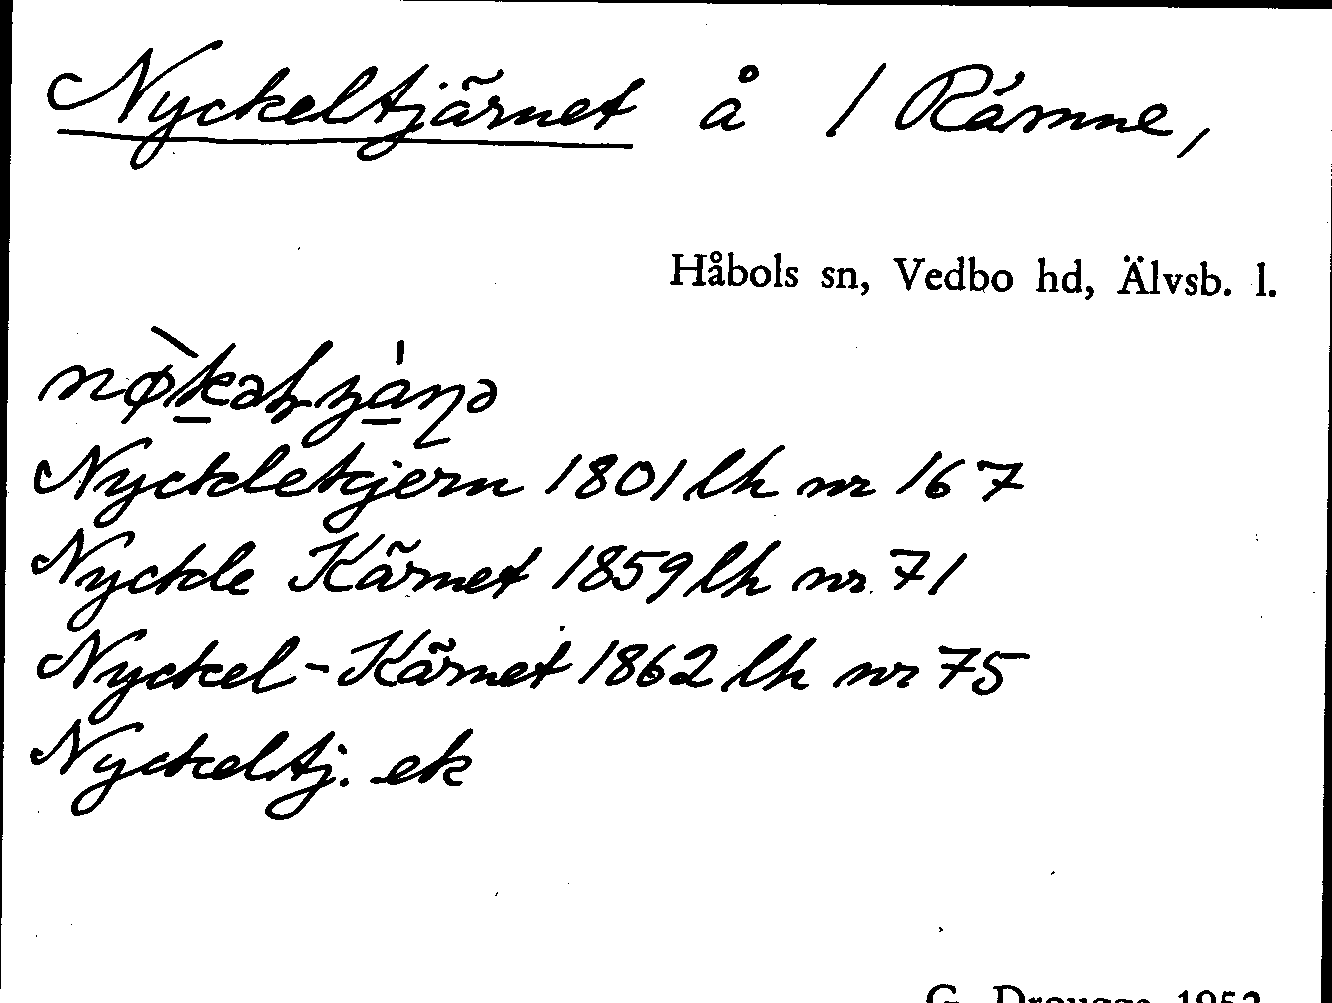 Nyckeltjärnet å 1 Rämne,
Håbols sn, Vedbo hd, Älvsb. l.
Nyckelekjern 1801 lh nr 167
Nyckle Kärnet 1859 lh nr 71
Nyckel-Kärnet 1862 lh nr 75
Nyckeltj. ek
G. Drougge 1952